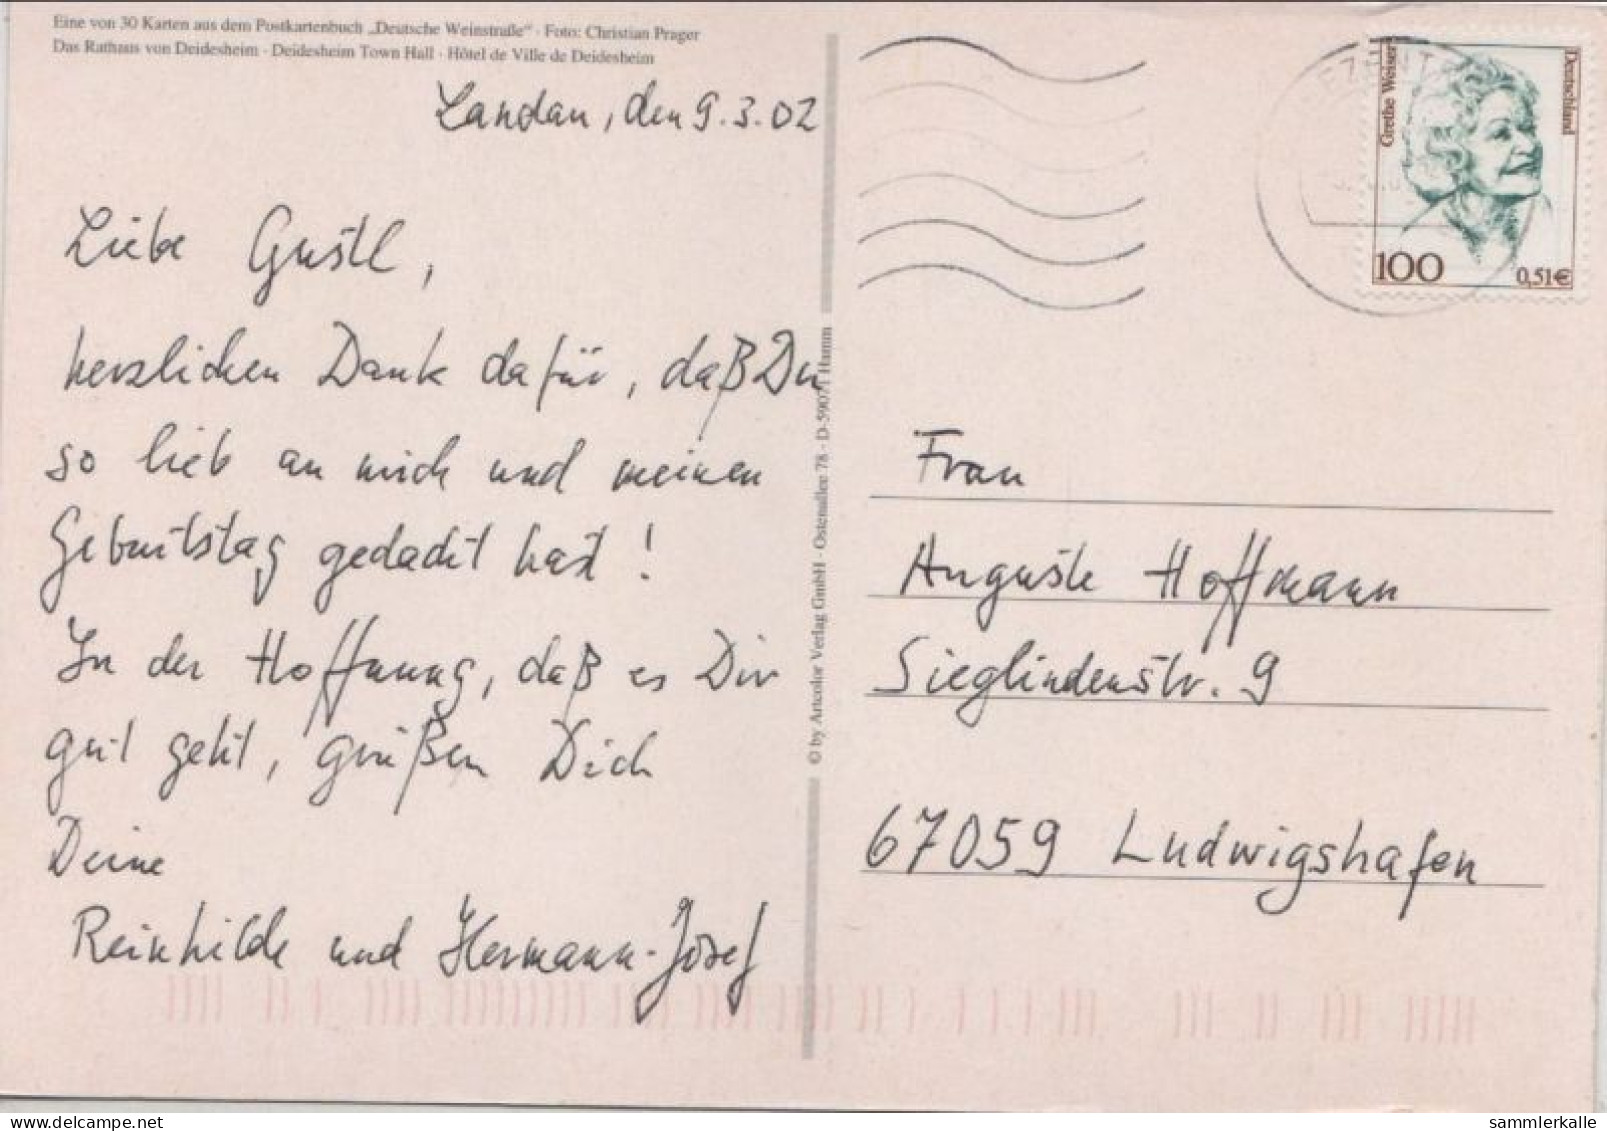 Eine von 30 Karten aus dem Postkartenbuch „Deutsche Weinstraße“ · Foto: Christian Prager
Das Rathaus von Deidesheim · Deidesheim Town Hall · Hôtel de Ville de Deidesheim
Landau, den 9.3.02
Liebe Gustl,
herzlichen Dank dafür, daß Du
so lieb an mich und meinen
Geburtstag gedacht hast!
In der Hoffnung, daß es Dir
gut geht, grüßen Dich
Deine
Reinhilde und Hermann-Josef
© by Artcolor Verlag GmbH · Ostenallee 78 · D-59071 Hamm
Grethe Weiser
Deutschland
100
0,51€
Frau
Auguste Hoffmann
Sieglindenstr. 9
67059 Ludwigshafen
delcampe.net
sammlerkalle